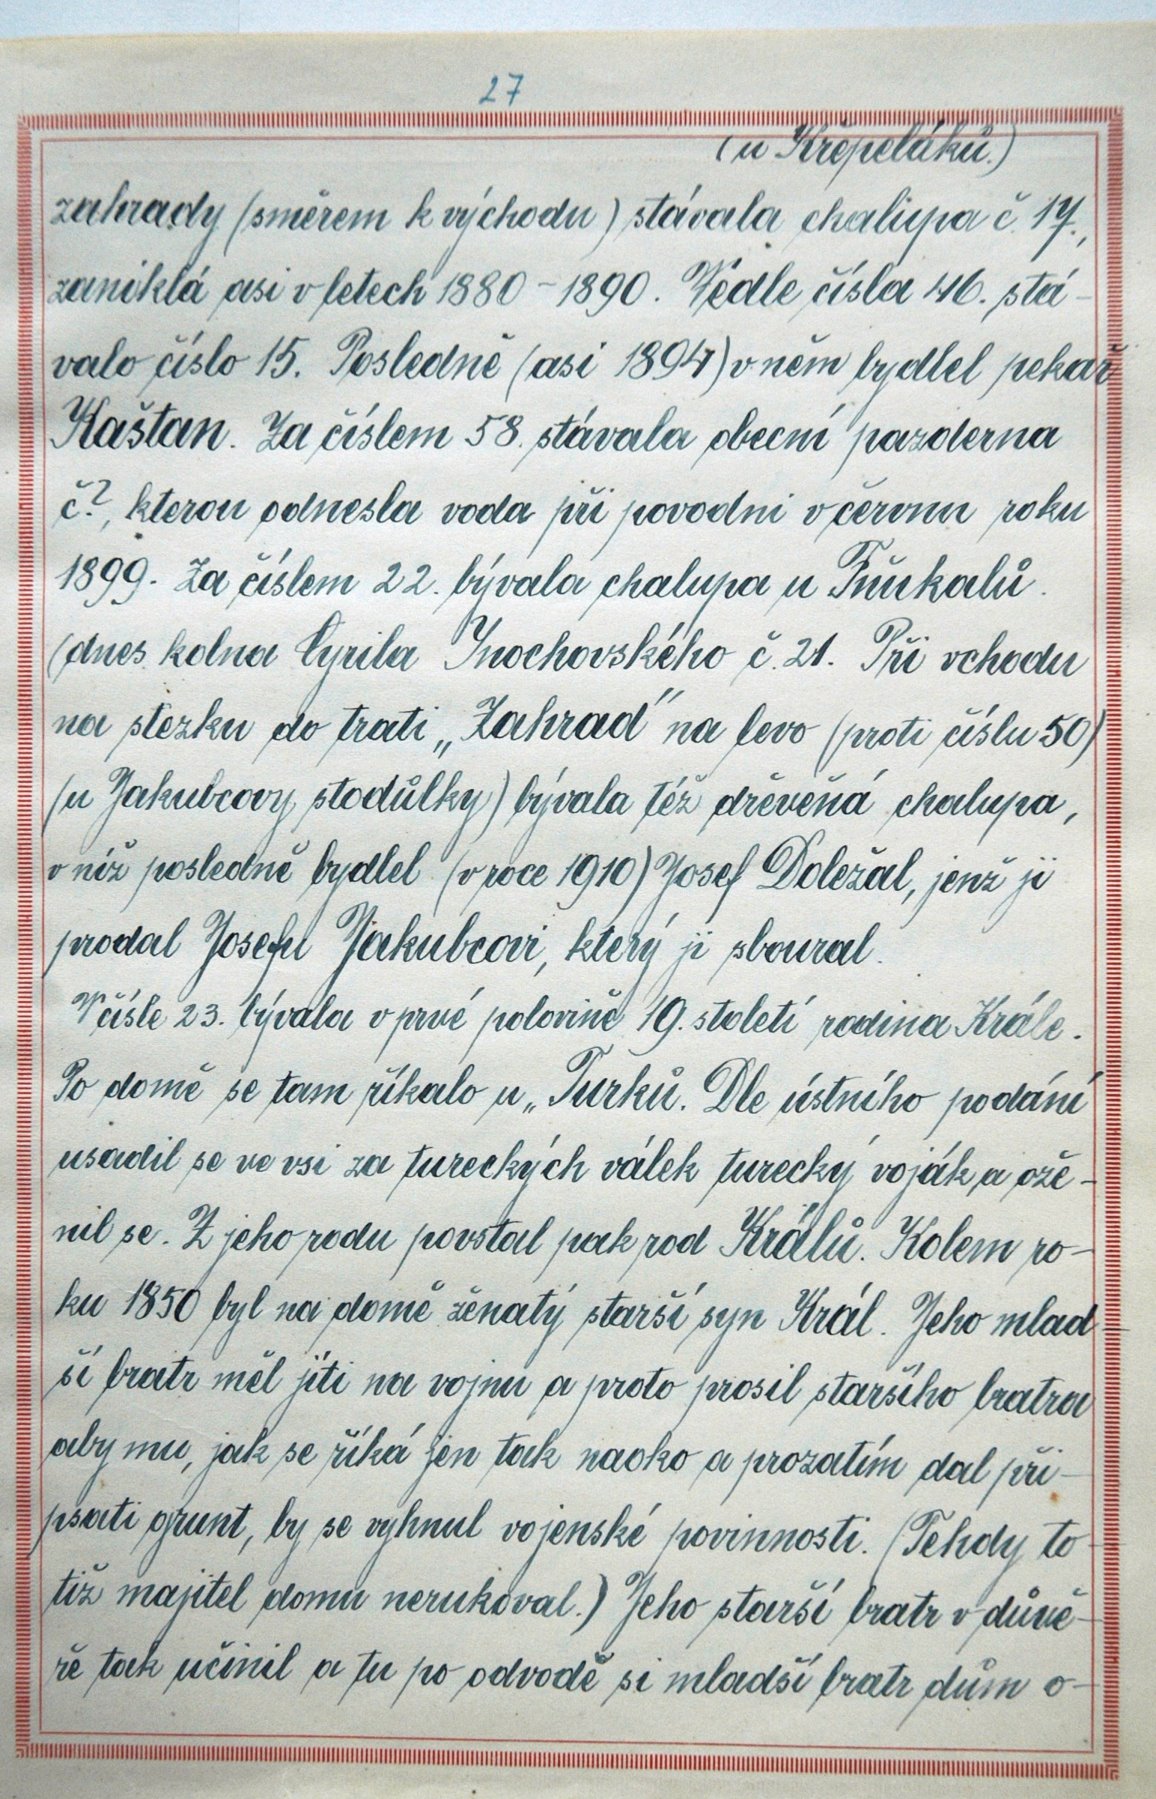 27
(u Křepeláků.)
zahrady (směrem k východu) stávala chalupa č. 17.,
zaniklá asi v letech 1880 - 1890. Vedle čísla 46. stá-
valo číslo 15. Posledně (asi 1894) v něm bydlel pekař
Kaštan. Za číslem 58. stávala obecní pazderna
č.?, kterou odnesla voda při povodni v červnu roku
1899. Za číslem 22. bývala chalupa u Ťukalů.
(dnes kolna Cyrila Inochovského č. 21. Při vchodu
na stezku do trati „Zahrad" na levo (proti číslu 50)
(u Jakubcovy stodůlky) bývala též dřevěná chalupa,
v níž posledně bydlel (v roce 1910) Josef Doležal, jenž ji
prodal Josefu Jakubcovi, který ji sboural.
V čísle 23. bývala v prvé polovině 19. století rodina Krále.
Po domě se tam říkalo u „Turků. Dle ústního podání
usadil se ve vsi za tureckých válek turecký voják a ože-
nil se. Z jeho rodu povstal pak rod Králů. Kolem ro-
ku 1850 byl na domě ženatý starší syn Král. Jeho mlad-
ší bratr měl jíti na vojnu a proto prosil staršího bratra
aby mu, jak se říká jen tak naoko a prozatím dal při-
psati grunt, by se vyhnul vojenské povinnosti. (Tehdy to-
tiž majitel domu nerukoval.) Jeho starší bratr v důvě-
ře tak učinil a tu po odvodě si mladší bratr dům o-